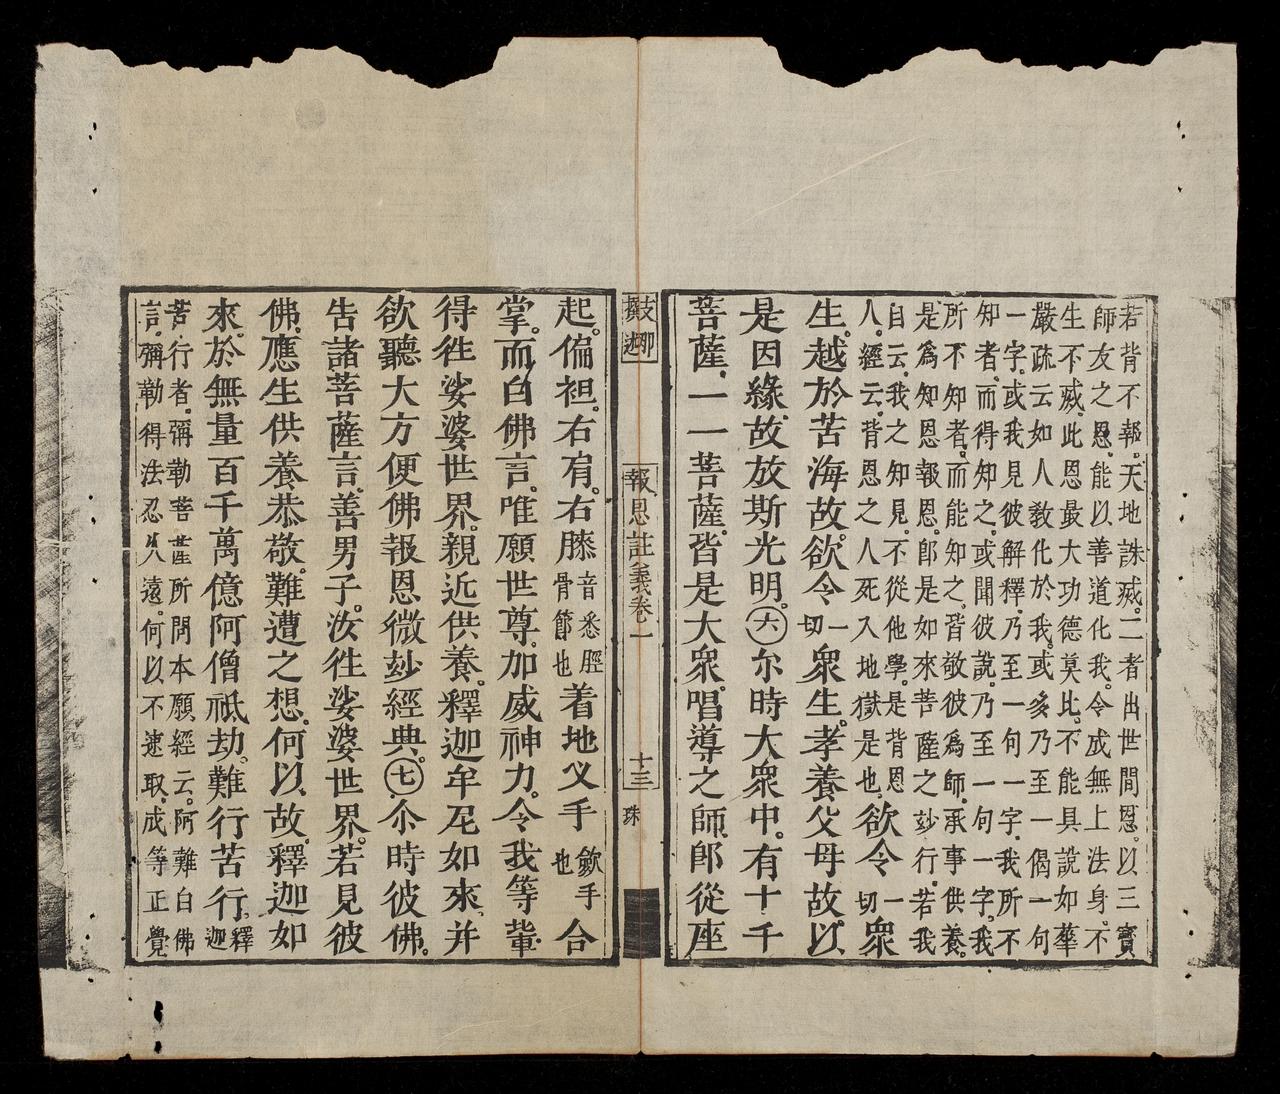 若背不報。天地誅烕。二者出世間恩。以三寶
師友之恩。能以善道化我。令成無上法身。不
生不烕。此恩最大功德莫比。不能具說如華
嚴疏云如人教化於我。或多乃至一偈一句
一字。或我見彼解釋。乃至一句一字。我所不
知者。而得知之。或聞彼說。乃至一句一字。我
所不知者。而能知之。皆敬彼為師。承事供養。
是為知恩報恩。卽是如來菩薩之玅行。若我
自云。我之知見。不從他學。是背恩
人。經云。背恩之人死入地獄是也。欲令一切眾
生。越於苦海故。欲令一切眾生。孝養父母故。以
是因緣。故放斯光明。㊅尒時大眾中。有十千
菩薩。一一菩薩。皆是大眾。唱導之師。卽從座
報恩註義卷一
十三
珠
起。偏袒。右肩。右膝音悉脛骨節也着地叉手歛手也合
掌。而白佛言。唯願世尊。加威神力。令我等軰
得徃娑婆世界。親近供養。釋迦牟尼如來。并
欲聽大方便佛報恩微玅經典。㊆尒時彼佛。
告諸菩薩言。善男子。汝徃娑婆世界。若見彼
佛。應生供養恭敬。難遭之想。何以故。釋迦如
來。於無量百千萬億阿僧祇劫。難行苦行。釋迦
苦行者。彌勒菩薩所問本願經云。阿難白佛
言。彌勒得法忍久遠。何以不速取。成等正覺